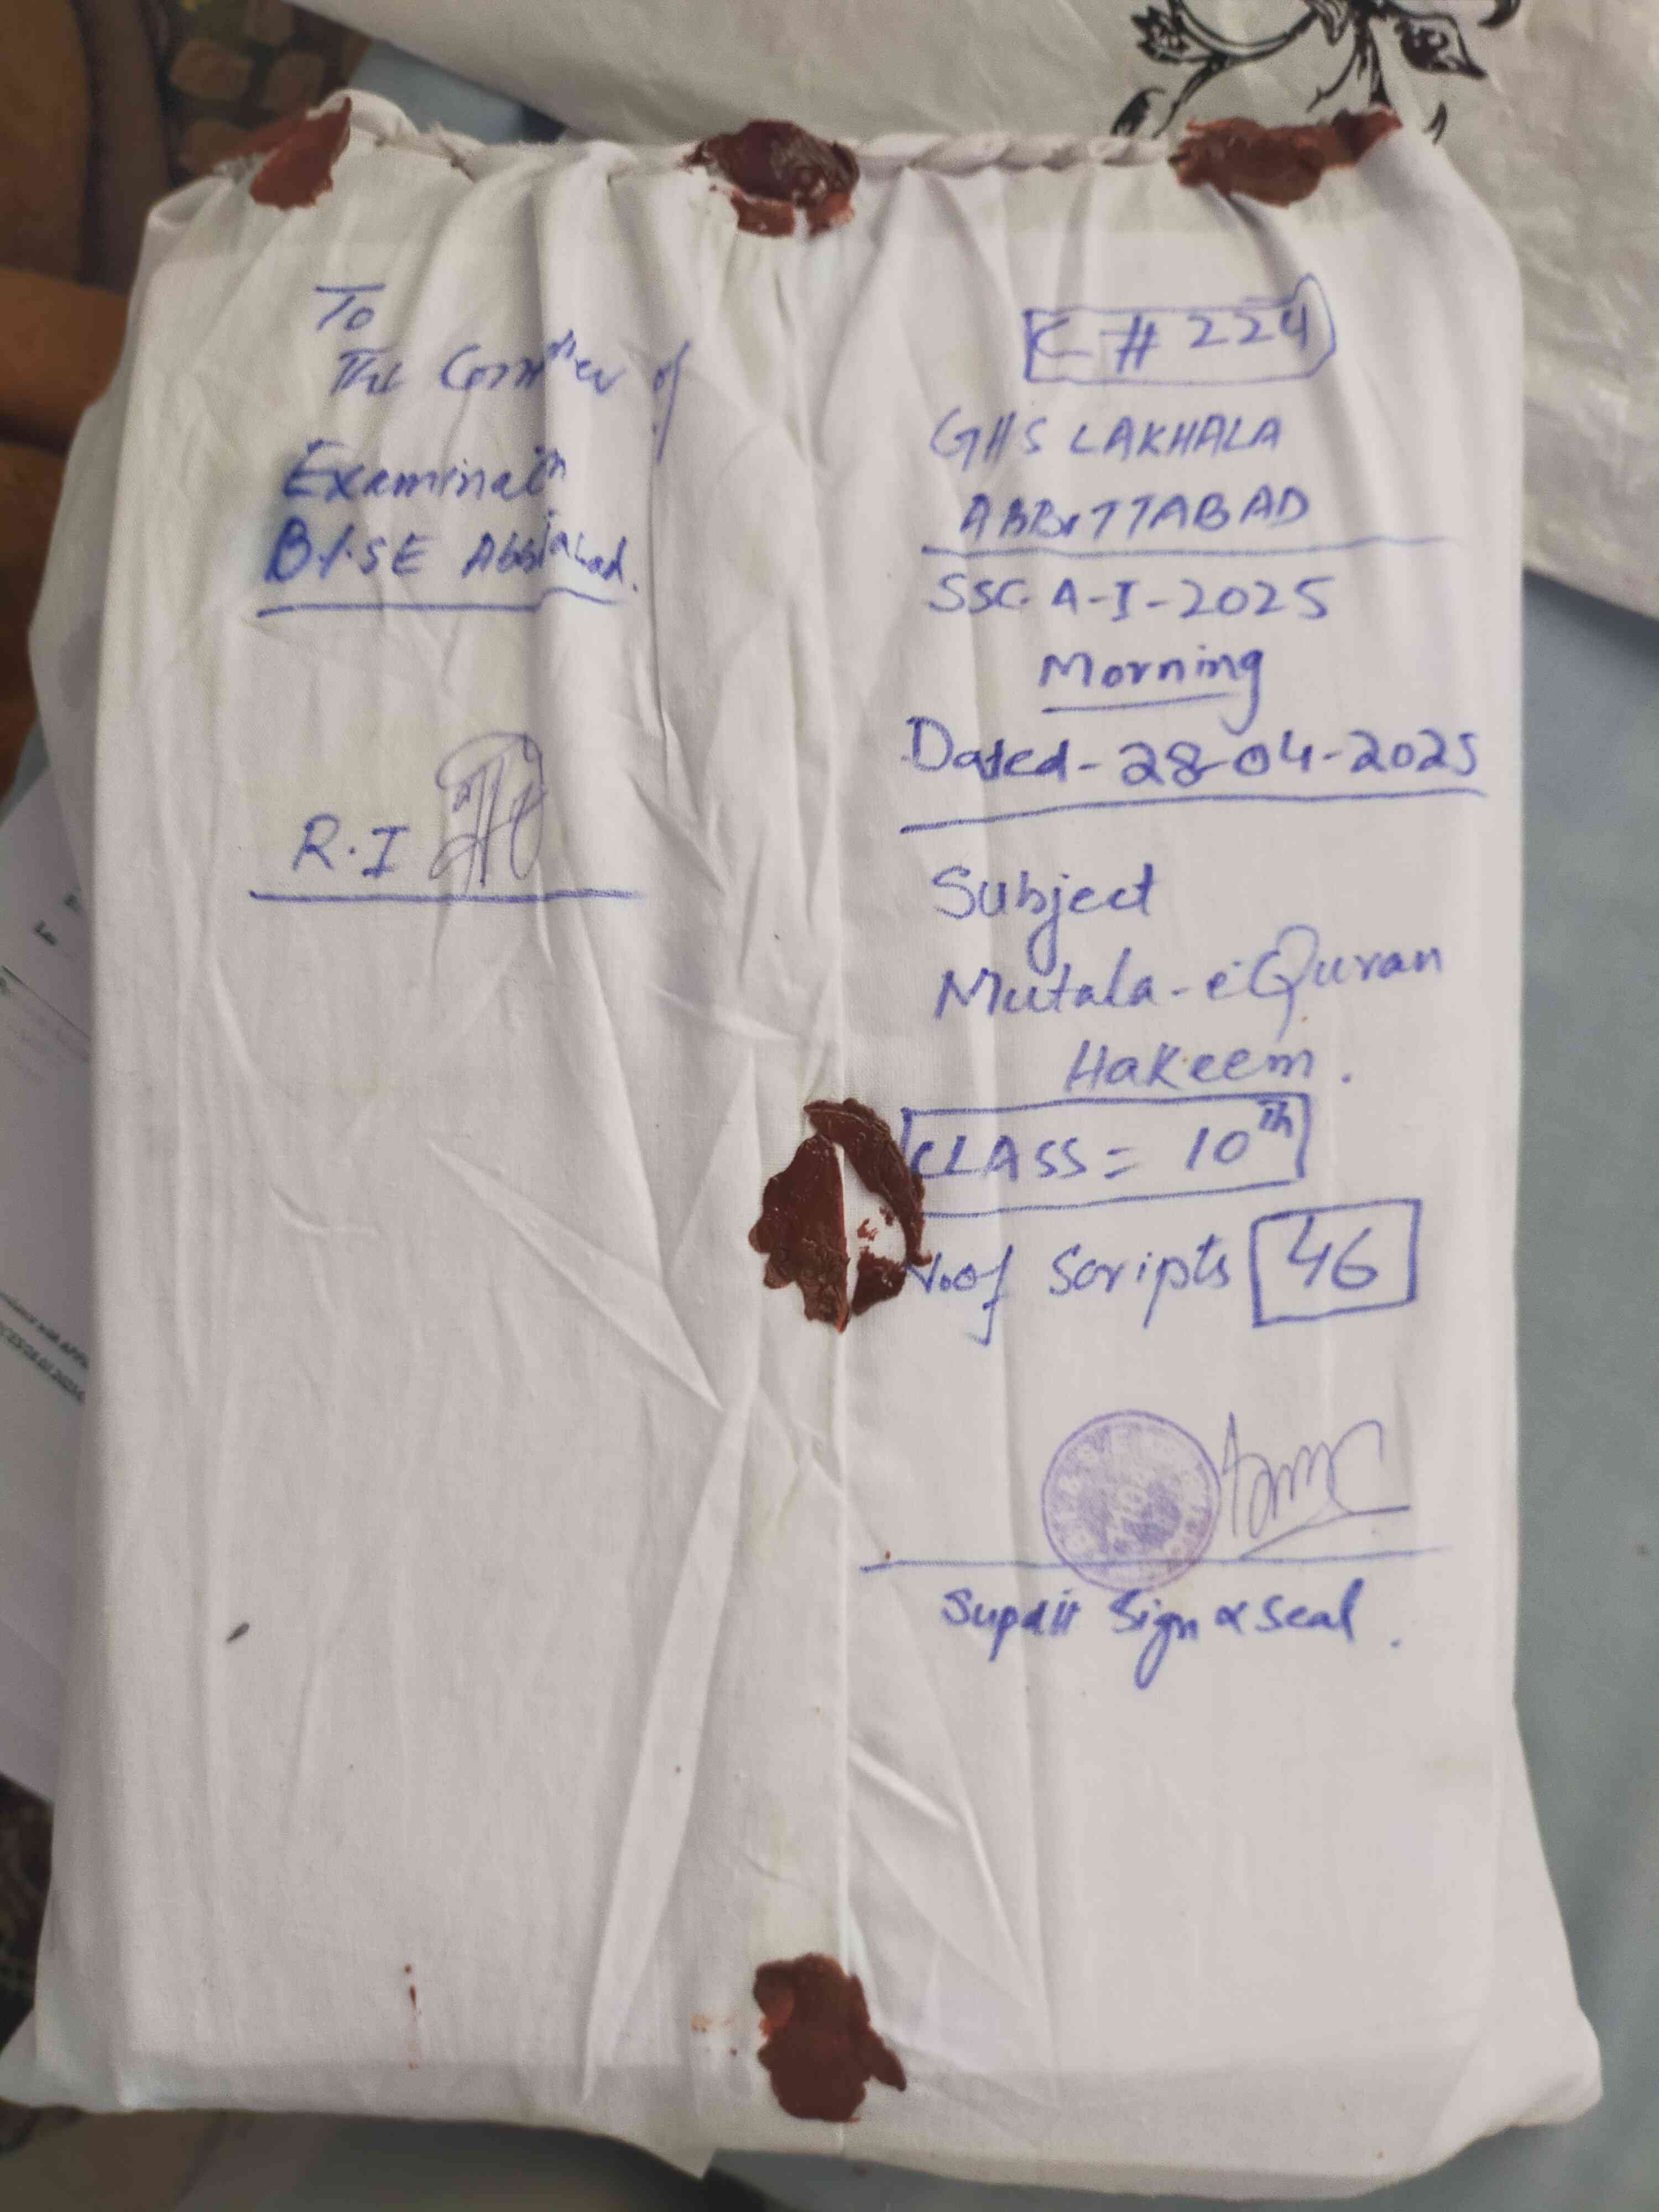 To
The Controller of
Examination
B.I.SE Abbottabad.
R.I
C # 224
GHS LAKHALA
ABBOTTABAD
SSC. A-I-2025
Morning
Dated-28-04-2025
Subject
Mutala-e-Quran
Hakeem.
CLASS = 10th
No of Scripts 46
Supdtt Sign & Seal.